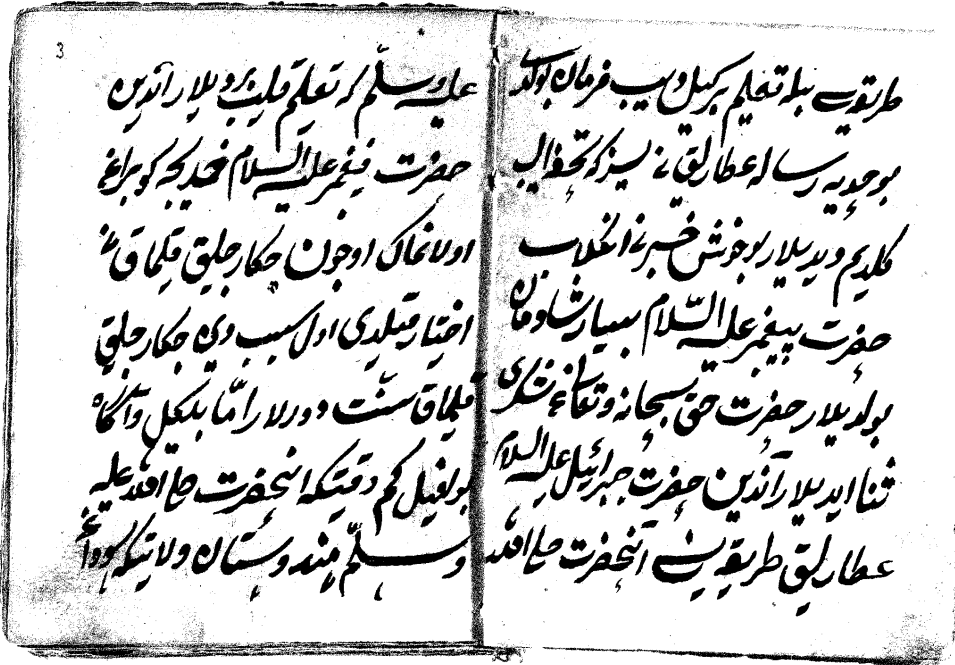 طریقی بیله تعلیم بیرکیل دیب فرمان بولدی
بو رساله عطارلیق نی سیزکه تحفه الیب
کلدیم دیدیلار بو خوش خبرنی انکلاب
حضرت پیغمبر علیه السّلام بسیار شادمان
بولدیلار حضرت حق سبحانه و تعالی غه شکری
ثنا ایدیلار آندین حضرت جبرائیل علیه السلام
عطارلیق طریقی آنحضرت صلی الله
3
علیه و سلّم که تعلیم قلیب بردیلار آندین
حضرت پیغمبر علیه السلام خدیجه کوبراغ
اولانماک اوچون جکارجلیق قیلماق نی
اختیار قیلدی اول سبب دین جکارجلیق
قیلماق سنّت دورلار امّا بلکیل و آگاه
بولغیل کم وقتیکه انحضرت صلی الله علیه
و سلّم هندوستان ولاتیکه